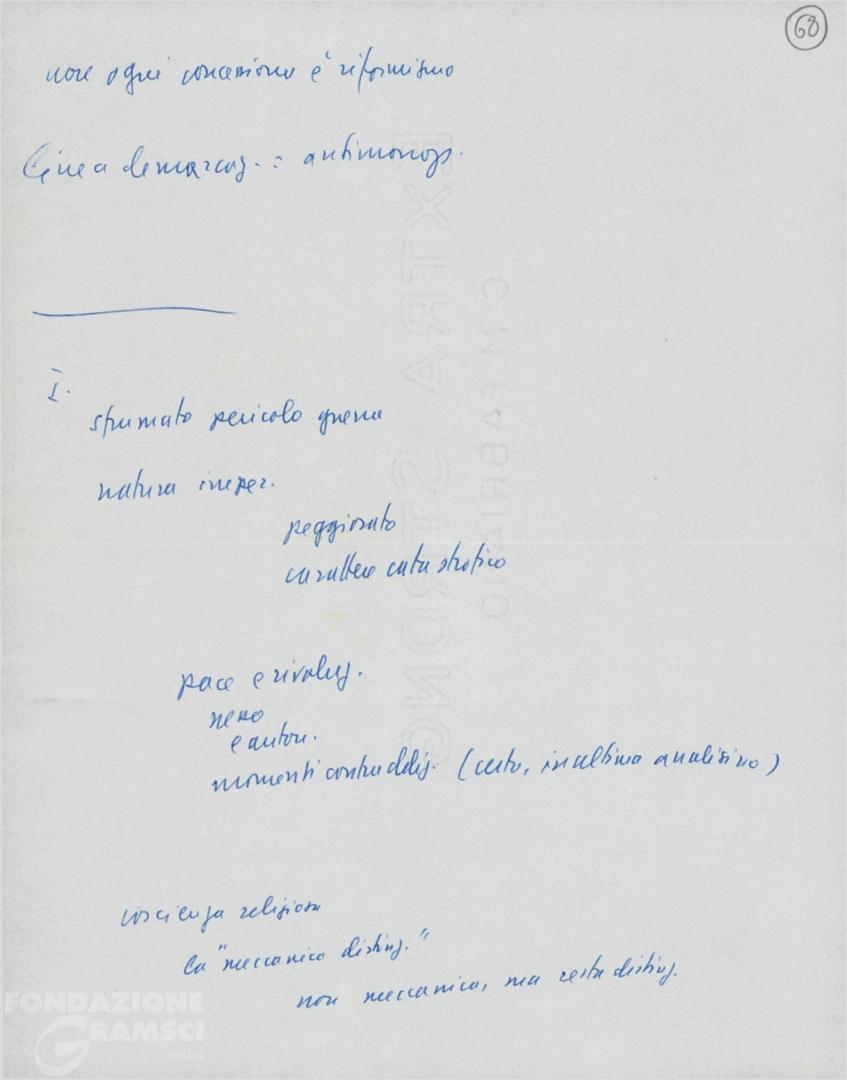 68
non ogni concessione è riformismo
linea demarcaz. : antimonop.
I.
sfumato pericolo guerra
natura imper.
peggiorato
carattere catastrofico
pace e rivoluz.
nesso
e auton.
momenti contraddiz. (certo, in ultima analisi no)
coscienza religiosa
la "meccanica distinz."
non meccanica, ma resta distinz.
EXTRA STRONG
C.M. FABRIANO
FONDAZIONE
GRAMSCI
onlus